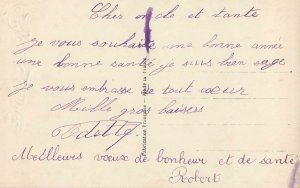 Cher oncle et tante
je vous souhaite une bonne année
une bonne santé je suis bien sage
je vous embrasse de tout cœur
Mille gros baisers
Odette
Meilleurs voeux de bonheur et de santé
Robert